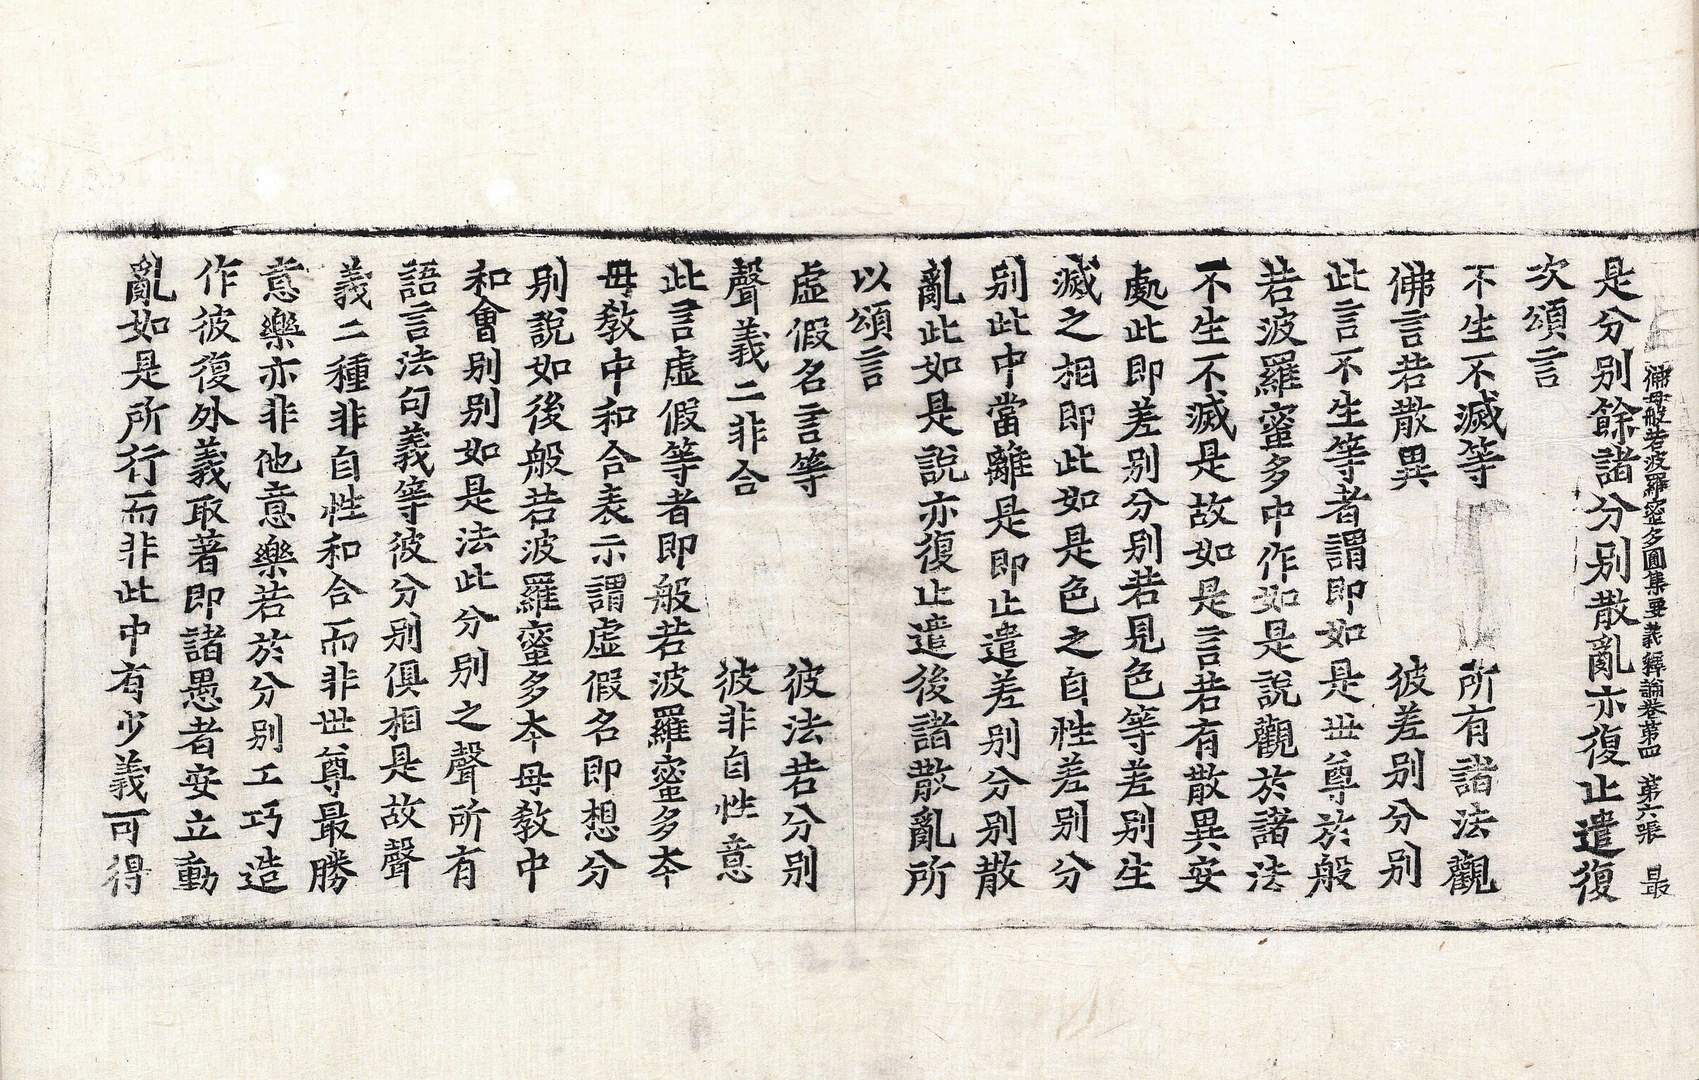 佛母般若波羅蜜多圓集要義釋論卷第四 第六張 最
是分別餘諸分別散亂亦復止遣復
次頌言
不生不滅等 所有諸法觀
佛言若散異 彼差別分別
此言不生等者謂即如是世尊於般
若波羅蜜多中作如是說觀於諸法
不生不滅是故如是言若有散異安
處此即差別分別若見色等差別生
滅之相即此如是色之自性差別分
別此中當離是即止遣差別分別散
亂此如是說亦復止遣後諸散亂所
以頌言
虛假名言等 彼法若分別
聲義二非合 彼非自性意
此言虛假等者即般若波羅蜜多本
母教中和合表示謂虛假名即想分
別說如後般若波羅蜜多本母教中
和會別別如是法此分別之聲所有
語言法句義等彼分別俱相是故聲
義二種非自性和合而非世尊最勝
意樂亦非他意樂若於分別工巧造
作彼復外義取著即諸愚者安立動
亂如是所行而非此中有少義可得